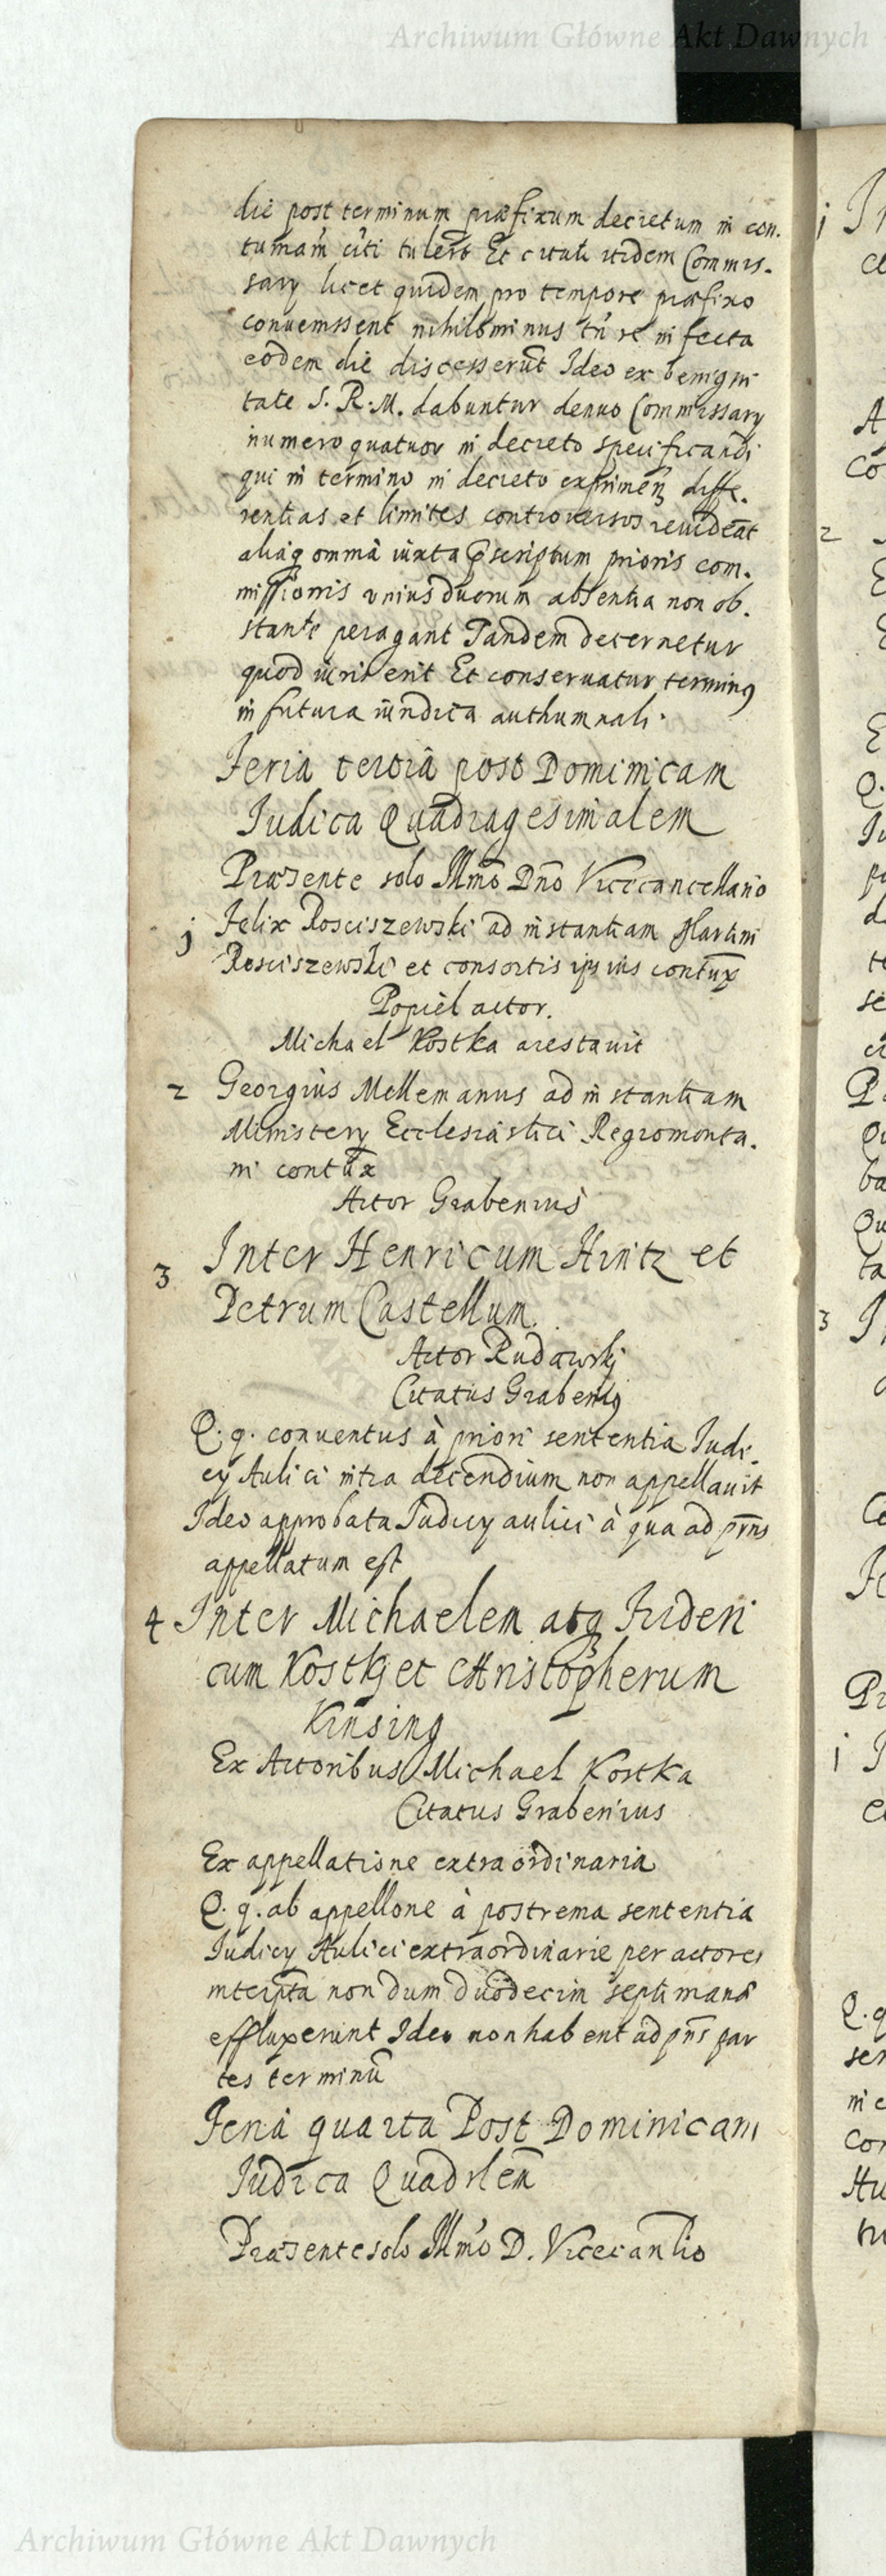 Archiwum Główne Akt Dawnych
die post terminum præfixum decretum in con.
tumam citi tulerit Et citati itidem Commis-
sary licet quidem pro tempore præfixo
conuenissent nihilominus tn re infecta
eodem die discesserut Ideo ex benigni
tate S. R. M. dabuntur denuo Commissary
numero quatuor in decreto specificandi
qui in termino in decreto exprimen diffe.
rentias et limites controuersos reuideat
aliaq omnia iuxta pscriptum prioris com.
missionis vnius duorum absentia non ob.
stante peragant Tandem decernetur
quod iuris erit Et conseruatur terminus
in futura iuridica authumnali.
Feria tertia post Dominicam
Iudica Quadragesimalem
Præsente solo Illmo Dno Vicecancellario
j Felix Rosciszewski ad instantiam Martini
Rosciszewski et consortis ipsius contux
Popiel actor.
Michael Kostka arestauit
2 Georgius Mellemanus ad instantiam
Ministery Ecclesiastici Regiomonta.
ni contux
Actor Grabenius
3 Inter Henricum Hintz et
Petrum Castellum.
Actor Rudawskj
Citatus Grabenius
Q. q. conuentus à priori sententia Judi.
cy Aulici intra decendium non appellauit
Ideo approbata Judicy aulici à qua ad prns
appellatum est
4 Inter Michaelem atq Frideri
cum Kostkj et Christopherum
Kinsing
Ex Actoribus Michael Kostka
Citatus Grabenius
Ex appellatione extraordinaria
Q. q. ab appellone à postrema sententia
Iudicy Aulici extraordinarie per actores
intcrpta non dum duodecim septimanæ
effluxerunt Ideo non habent ad pns par
tes terminu
Feria quarta Post Dominicam
Judica Quadrlem
Præsente solo Illmo D. Vicecanlio
Archiwum Główne Akt Dawnych